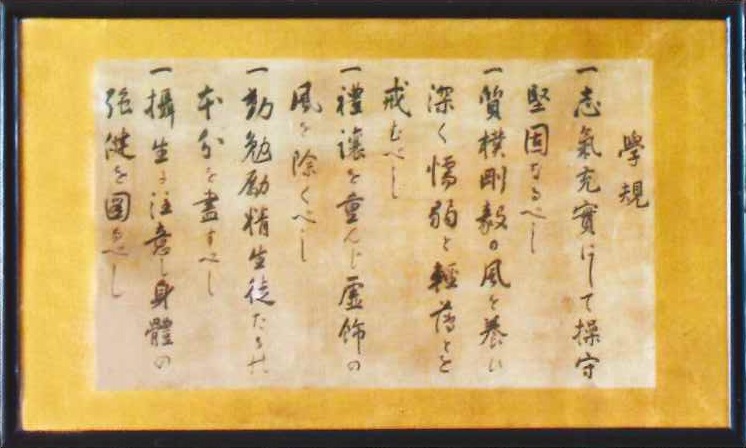 學規
一志氣充實にして操守
堅固なるべし
一質樸剛毅の風を養ひ
深く懦弱と輕薄とを
戒むべし
一禮讓を重んじ虛飾の
風を除くべし
一勤勉勵精生徒たるの
本分を盡すべし
一攝生に注意し身體の
强健を圖るべし